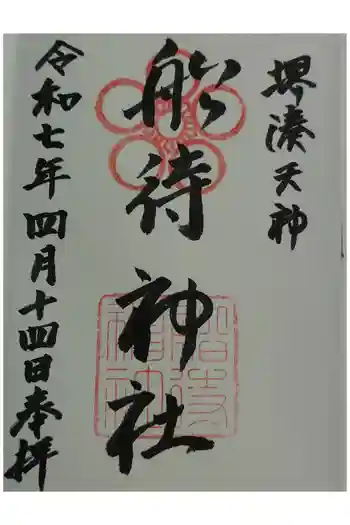 堺湊天神
船待神社
令和七年四月十四日奉拝
船待神社